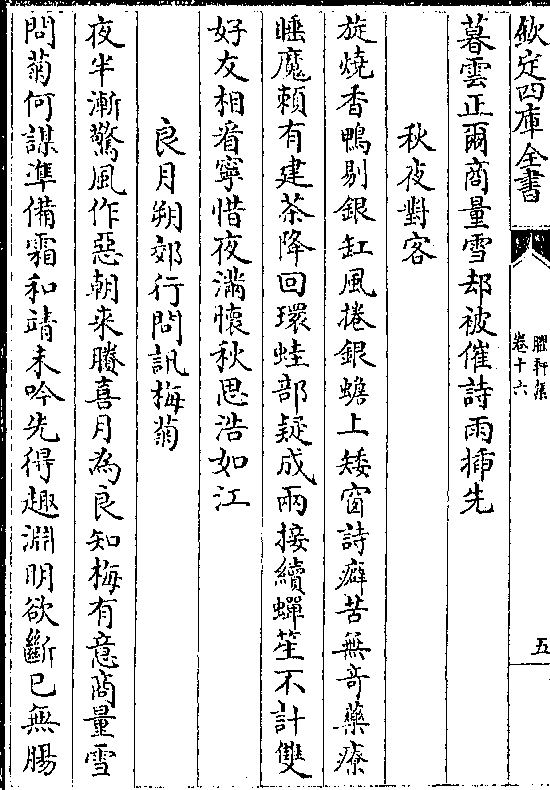 欽定四庫全書
臞軒集
卷十六
五
暮雲正爾商量雪却被催詩雨揷先
秋夜對客
旋燒香鴨剔銀缸風捲銀蟾上矮窗詩癖苦無奇藥療
睡魔頼有建茶降回環蛙部疑成兩接續蟬笙不計雙
好友相看寧惜夜滿懷秋思浩如江
良月朔郊行問訊梅菊
夜半漸驚風作惡朝來賸喜月為良知梅有意商量雪
問菊何謀準備霜和靖未吟先得趣淵明欲斷已無腸